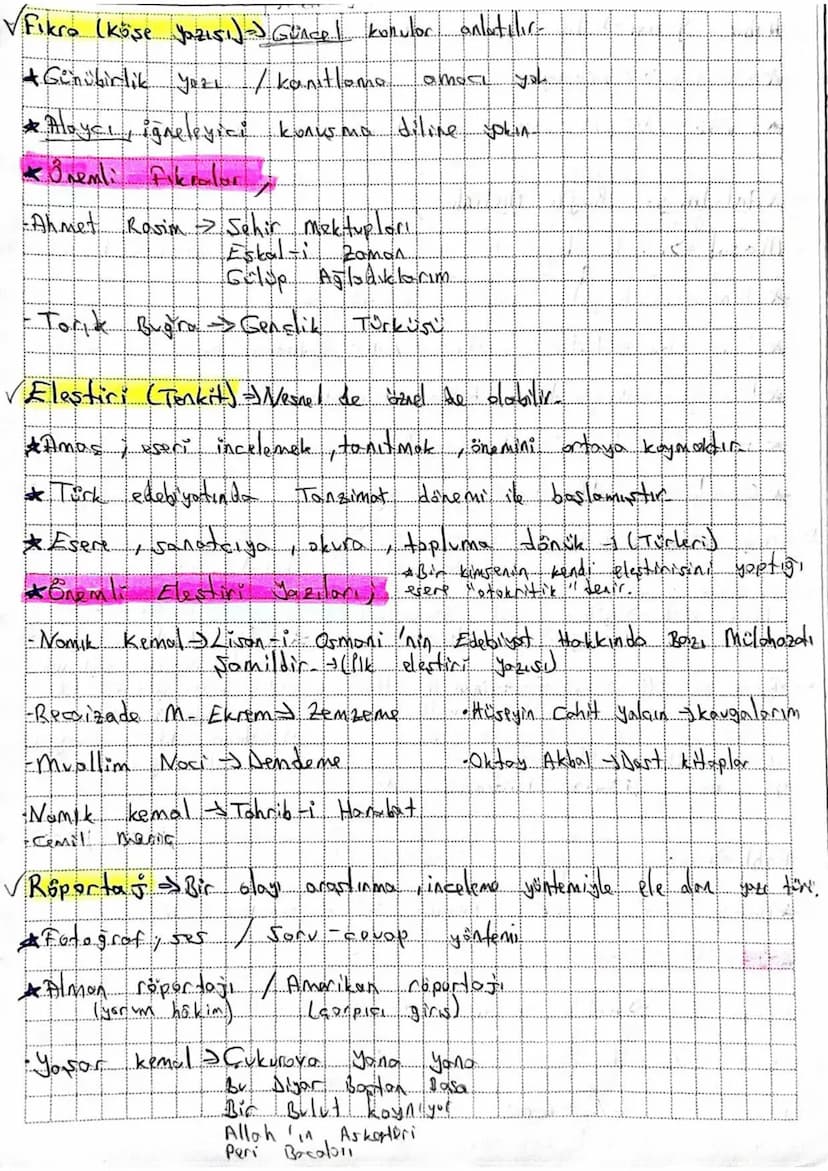 √ Fıkra (Köşe Yazısı) → Güncel konular anlatılır.
★ Günübirlik yazı / kanıtlama amacı yok
★ Alaycı, iğneleyici konuşma diline yakın.
★ Önemli Fıkralar;
-Ahmet Rasim → Şehir Mektupları
Eşkal-i Zaman
Gülüp Ağladıklarım
- Tarık Buğra → Gençlik Türküsü
√ Eleştiri (Tenkit) → Nesnel de öznel de olabilir.
★ Amaç ; eseri incelemek, tanıtmak, önemini ortaya koymaktır.
★ Türk edebiyatında Tanzimat dönemi ile başlamıştır.
★ Esere, sanatçıya, okura, topluma dönük → (Türleri)
★ Bir kimsenin kendi eleştirisini yaptığı
esere "otokritik" denir.
★ Önemli Eleştiri Yazıları;
- Namık Kemal → Lisan-i Osmani'nin Edebiyat Hakkında Bazı Mülahazatı
Şamildir. → (İlk eleştiri yazısı)
-Recaizade M. Ekrem → Zemzeme
• Hüseyin Cahit Yalçın → Kavgalarım
-Muallim Naci → Demdeme
• Oktay Akbal → Dost kitaplar
-Namık Kemal → Tahrib-i Harabat
-Cemil Meriç
√ Röportaj → Bir olayı araştırma, inceleme yöntemiyle ele alan yazı türü.
★ Fotoğraf, ses / Soru-cevap yöntemi
★ Alman röportajı / Amerikan röportajı
(yorum hâkim) (çarpıcı giriş)
• Yaşar Kemal → Çukurova Yana Yana
Bu Diyar Baştan Başa
Bir Bulut Kaynıyor
Allah'ın Askerleri
Peri Bacaları